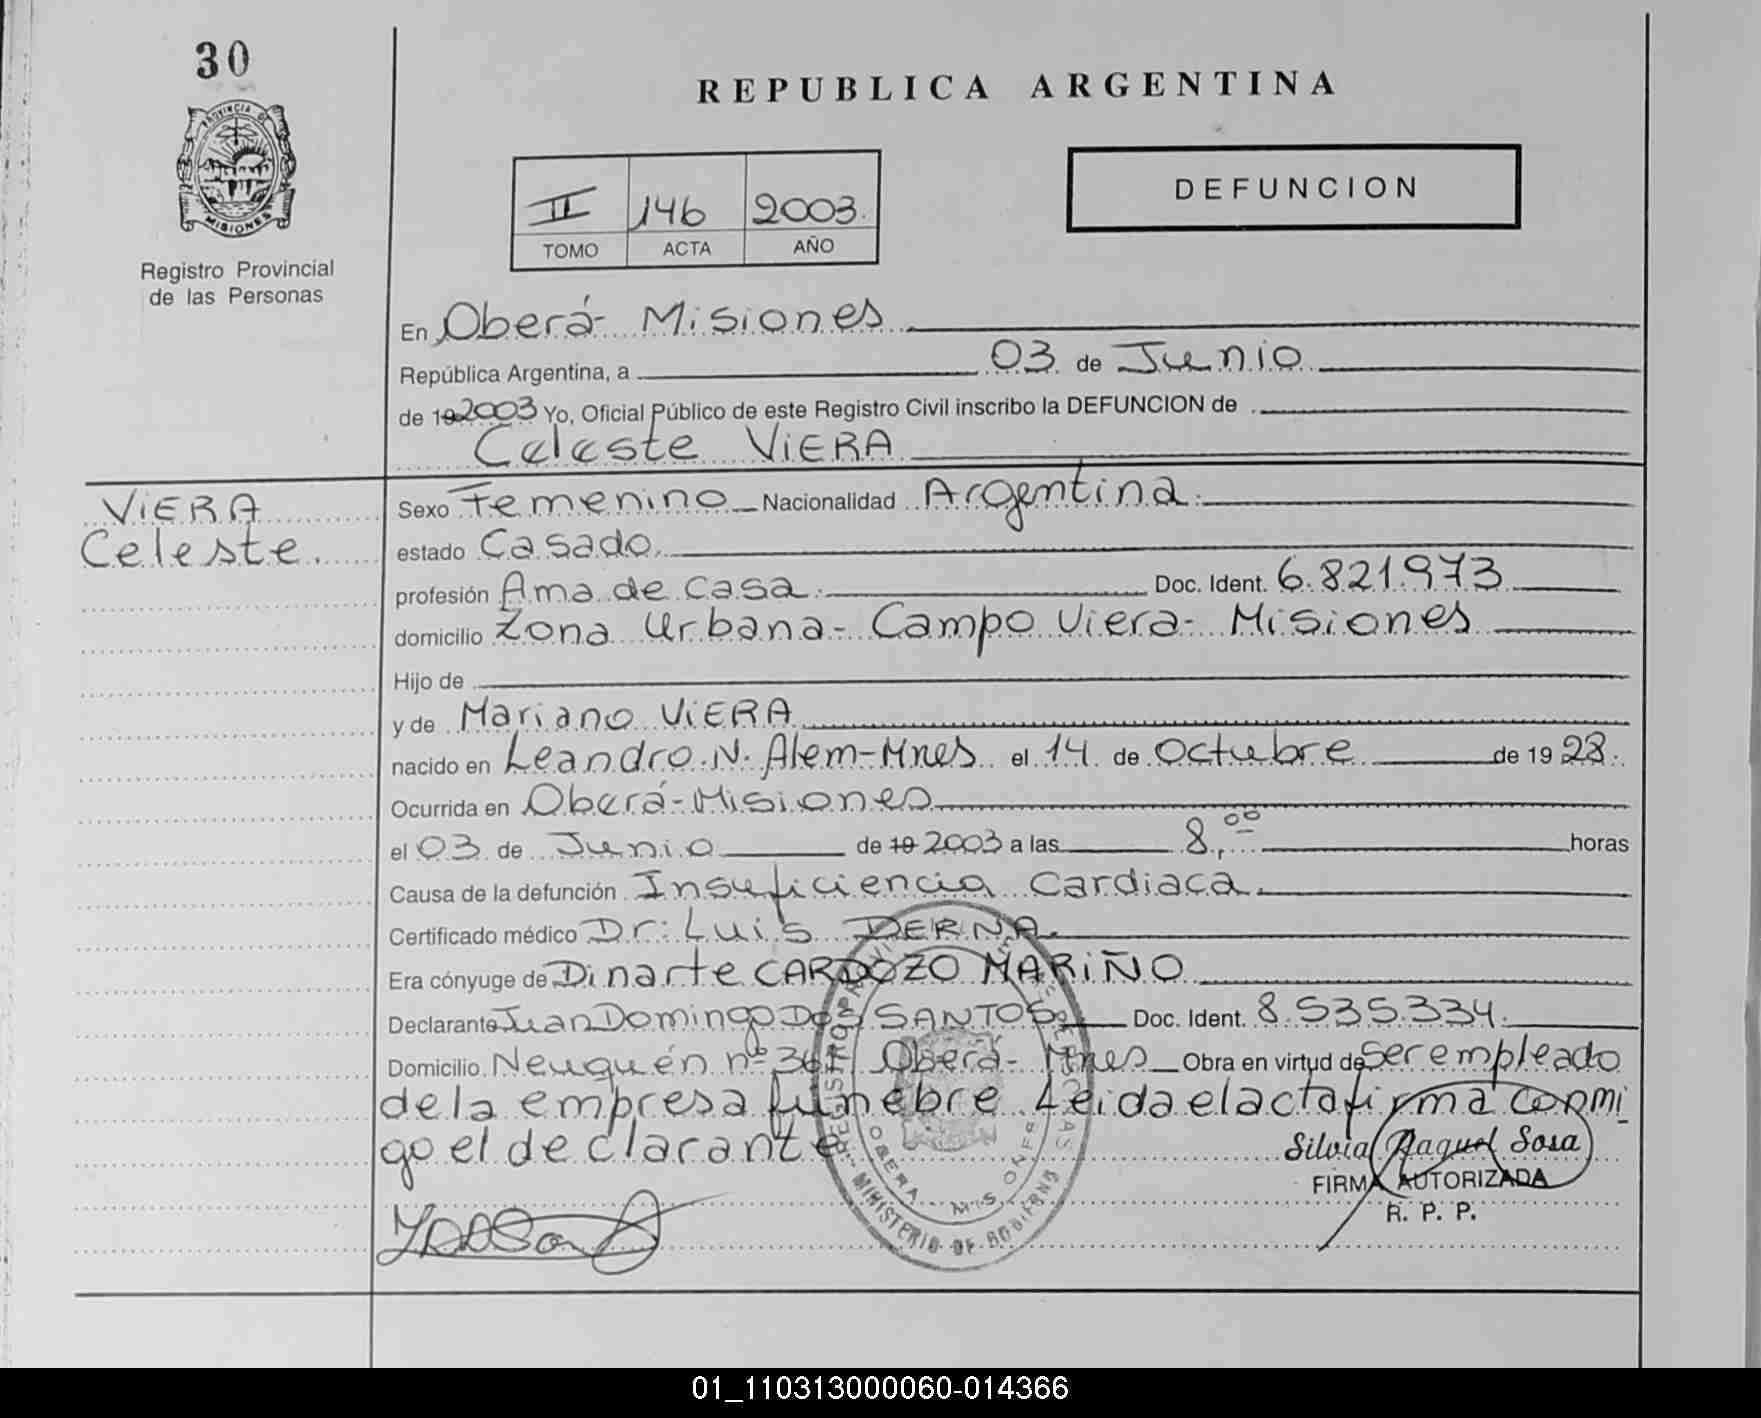 30
REPUBLICA ARGENTINA
PROVINCIA DE
MISIONES
Registro Provincial
de las Personas
II 146 2003.
TOMO ACTA AÑO
DEFUNCION
En Oberá- Misiones
República Argentina, a 03 de Junio
de 192003 Yo, Oficial Público de este Registro Civil inscribo la DEFUNCION de
Celeste ViERA
ViERA
Celeste.
Sexo Femenino Nacionalidad Argentina.
estado Casado.
profesión Ama de casa. Doc. Ident. 6.821.973
domicilio Zona Urbana- Campo Viera- Misiones
Hijo de
y de Mariano ViERA
nacido en Leandro N. Alem-Mnes el 14 de Octubre de 19 28.
Ocurrida en Oberá-Misiones
el 03 de Junio de 19 2003 a las 8,00 horas
Causa de la defunción Insuficiencia Cardiaca.
Certificado médico Dr: Luis DERNA.
Era cónyuge de Dinarte CARDOZO MARiÑO
Declarante Juan Domingo Dos SANTOS Doc. Ident. 8.535.334.
Domicilio Neuquén nº Oberá- Mnes Obra en virtud de ser empleado
de la empresa fúnebre Leida el acta firma conmi
go el declarante
Silvia Raquel Sosa
FIRMA AUTORIZADA
R. P. P.
OBERA MISIONES
MINISTERIO DE GOBIERNO
01_110313000060-014366